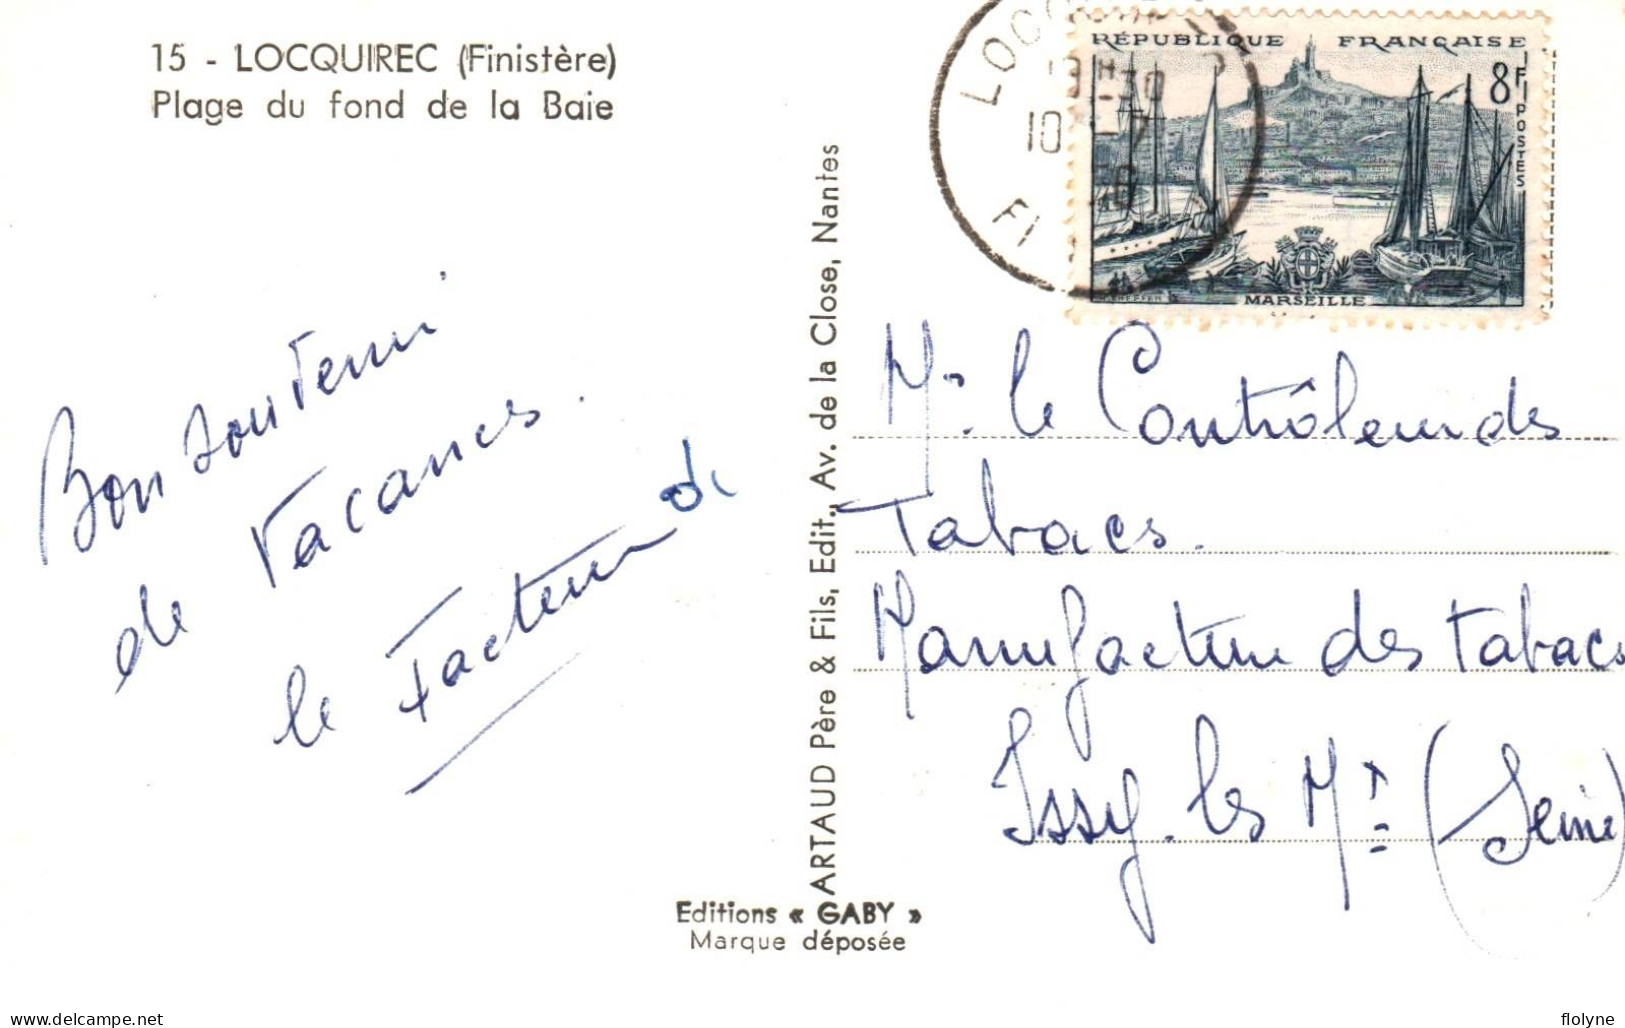 15 - LOCQUIREC (Finistère)
Plage du fond de la Baie
RÉPUBLIQUE FRANÇAISE
8F
POSTES
MARSEILLE
13H30
10 -7
FI
Bon souvenir
de Vacances.
le Facteur
Mr le Contrôleur des
Tabacs.
Manufacture des Tabacs
Issy-les-Mx (Seine)
ARTAUD Père & Fils, Edit., Av. de la Close, Nantes
Editions « GABY »
Marque déposée
delcampe.net
flolyne